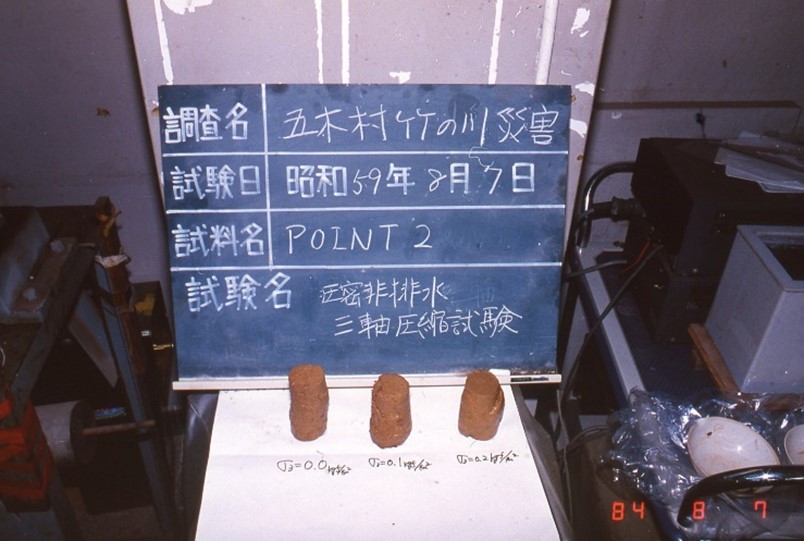 調査名 五木村竹の川災害
試験日 昭和59年8月7日
試料名 POINT 2
試験名 圧密非排水
三軸圧縮試験
σ3=0.0kgf/cm² σ3=0.1kgf/cm² σ3=0.2kgf/cm²
84 8 7